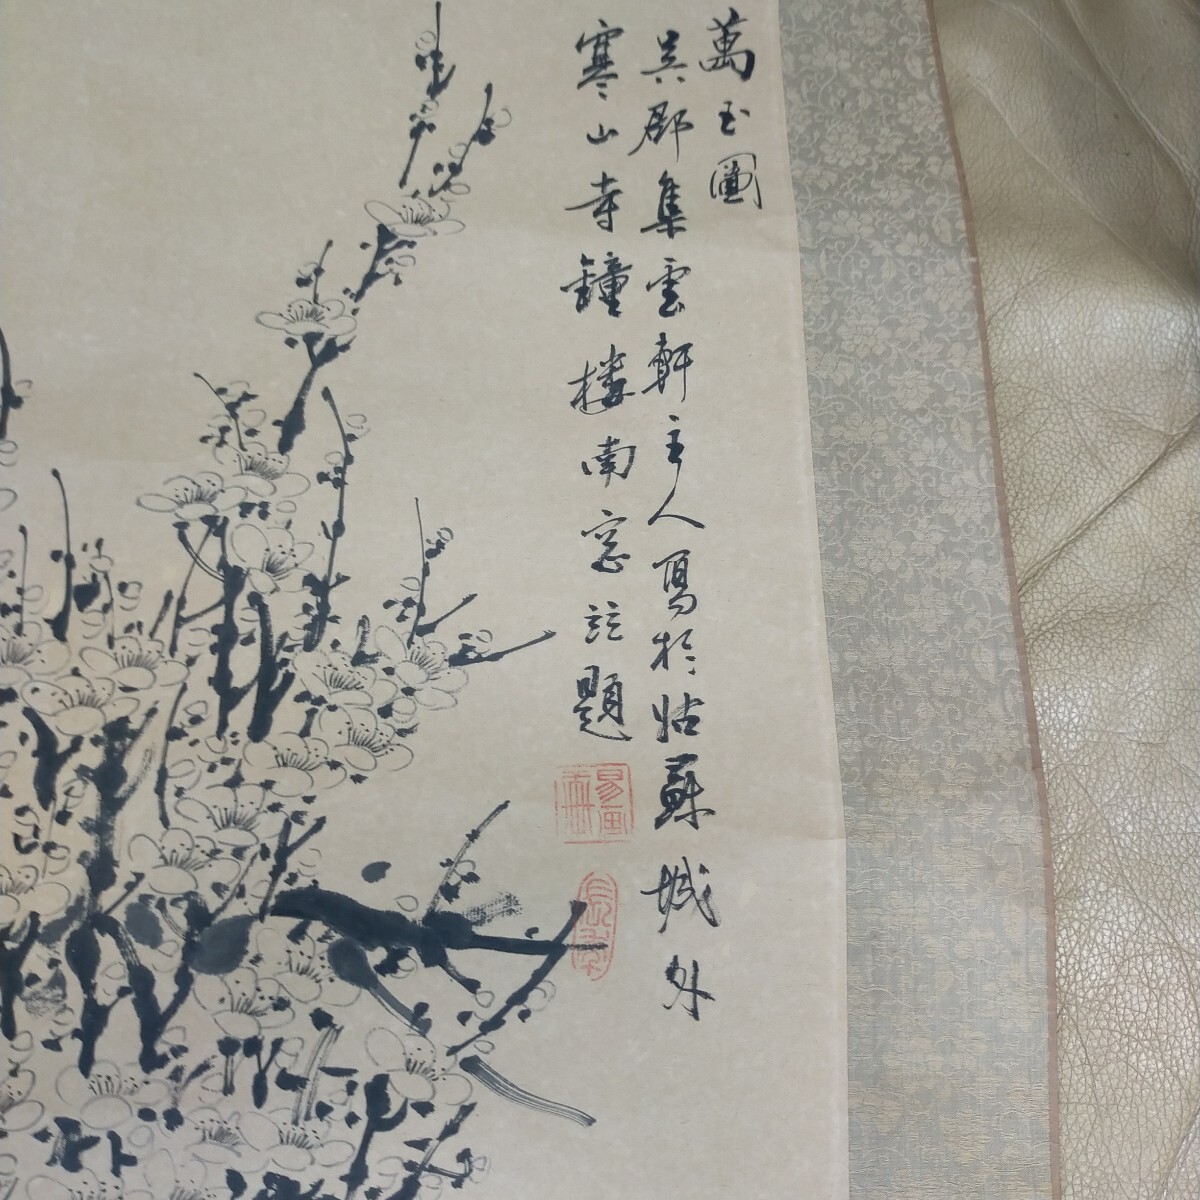 萬玉圖
吳郡集雲軒主人寫於姑蘇城外
寒山寺鐘楼南窓註題